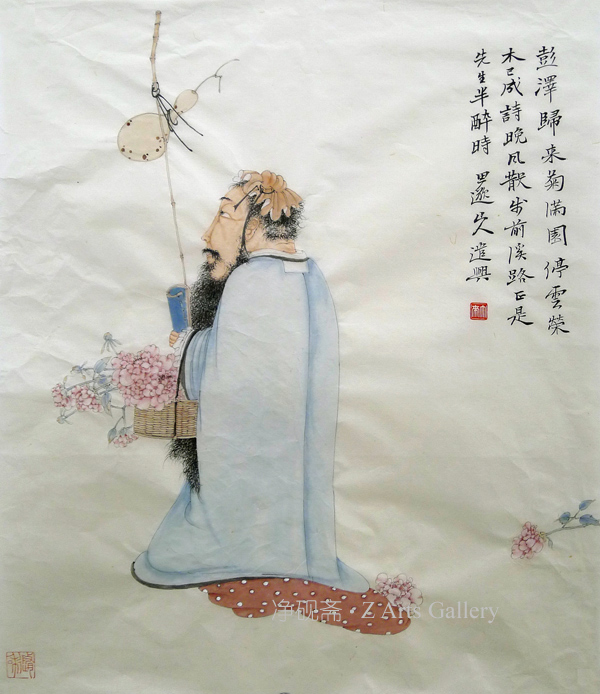 彭澤歸來菊滿園停雲榮
木已成詩晚风散步前溪路正是
先生半醉時 田邊火 造興
净砚斋 · Z Arts Gallery